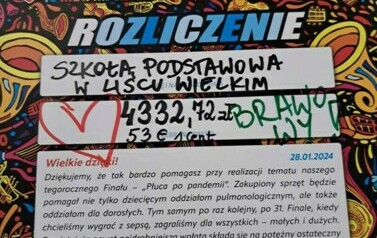 ROZLICZENIE
SZKOŁA PODSTAWOWA
W UŚCU WIELKIM
4332,72 zł BRAWO
53 € 1 cent WY
Wielkie dzięki!
28.01.2024
Dziękujemy, że tak bardzo pomagasz przy realizacji tematu naszego
tegorocznego Finału – „Płuca po pandemii”. Zakupiony sprzęt będzie
pomagał nie tylko dziecięcym oddziałom pulmonologicznym, ale także
oddziałom dla dorosłych. Tym samym po raz kolejny, po 31. Finale, kiedy
chcieliśmy wygrać z sepsą, zagraliśmy dla wszystkich – małych i dużych.